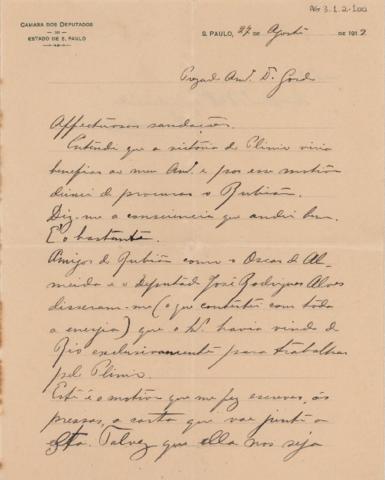 AG 3.1.2-100
CAMARA DOS DEPUTADOS
DO
ESTADO DE S. PAULO
S. PAULO, 27 DE Agosto DE 1912
Prezado Amo. Dr. Gordo
Affectuosas saudações.
Entendi que a victoria do Plinio viria
beneficiar ao meu Amo. e por esse motivo
deixei de procurar o Rubião.
Diz-me a consciencia que andei bem.
É o bastante.
Amigos do Rubião como o Oscar de Al-
meida e o Deputado José Rodrigues Alves
disseram-me (o que contestei com toda
a energia) que o Sr. havia vindo do
Rio exclusivamente para trabalhar
pelo Plinio.
Este é o motivo que me fez escrever, ás
pressas, a carta que vae junto a
esta. Talvez que ella nos seja